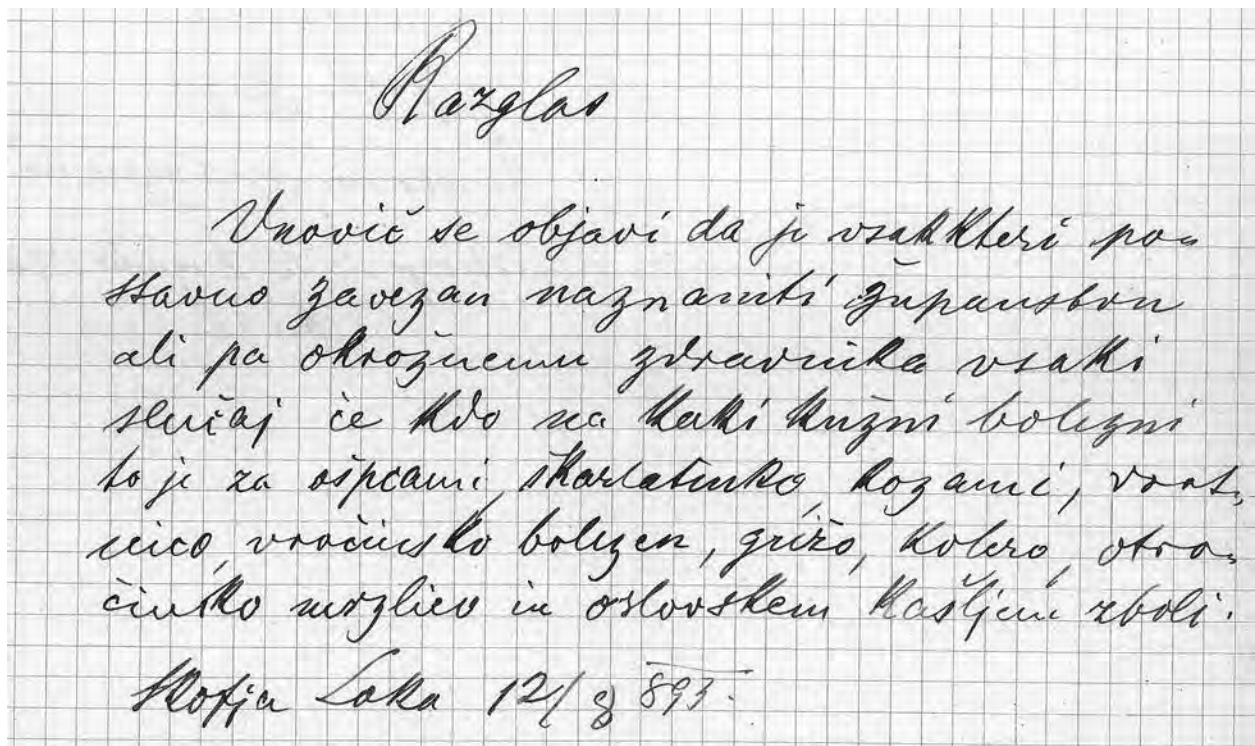 Razglas
Vnovič se objavi da je vsakkteri po-
stavno zavezan naznaniti županstvu
ali pa okrožnemu zdravnika vsaki
slučaj če kdo na kaki kužni bolezni
to je za ošpcami, škarlatinko, kozami, vrat-
nico, vročinsko bolezen, grižo, kolero, otro-
činsko mrzlico in oslovskem kašljem zboli.
Škofja Loka 12/8 893.